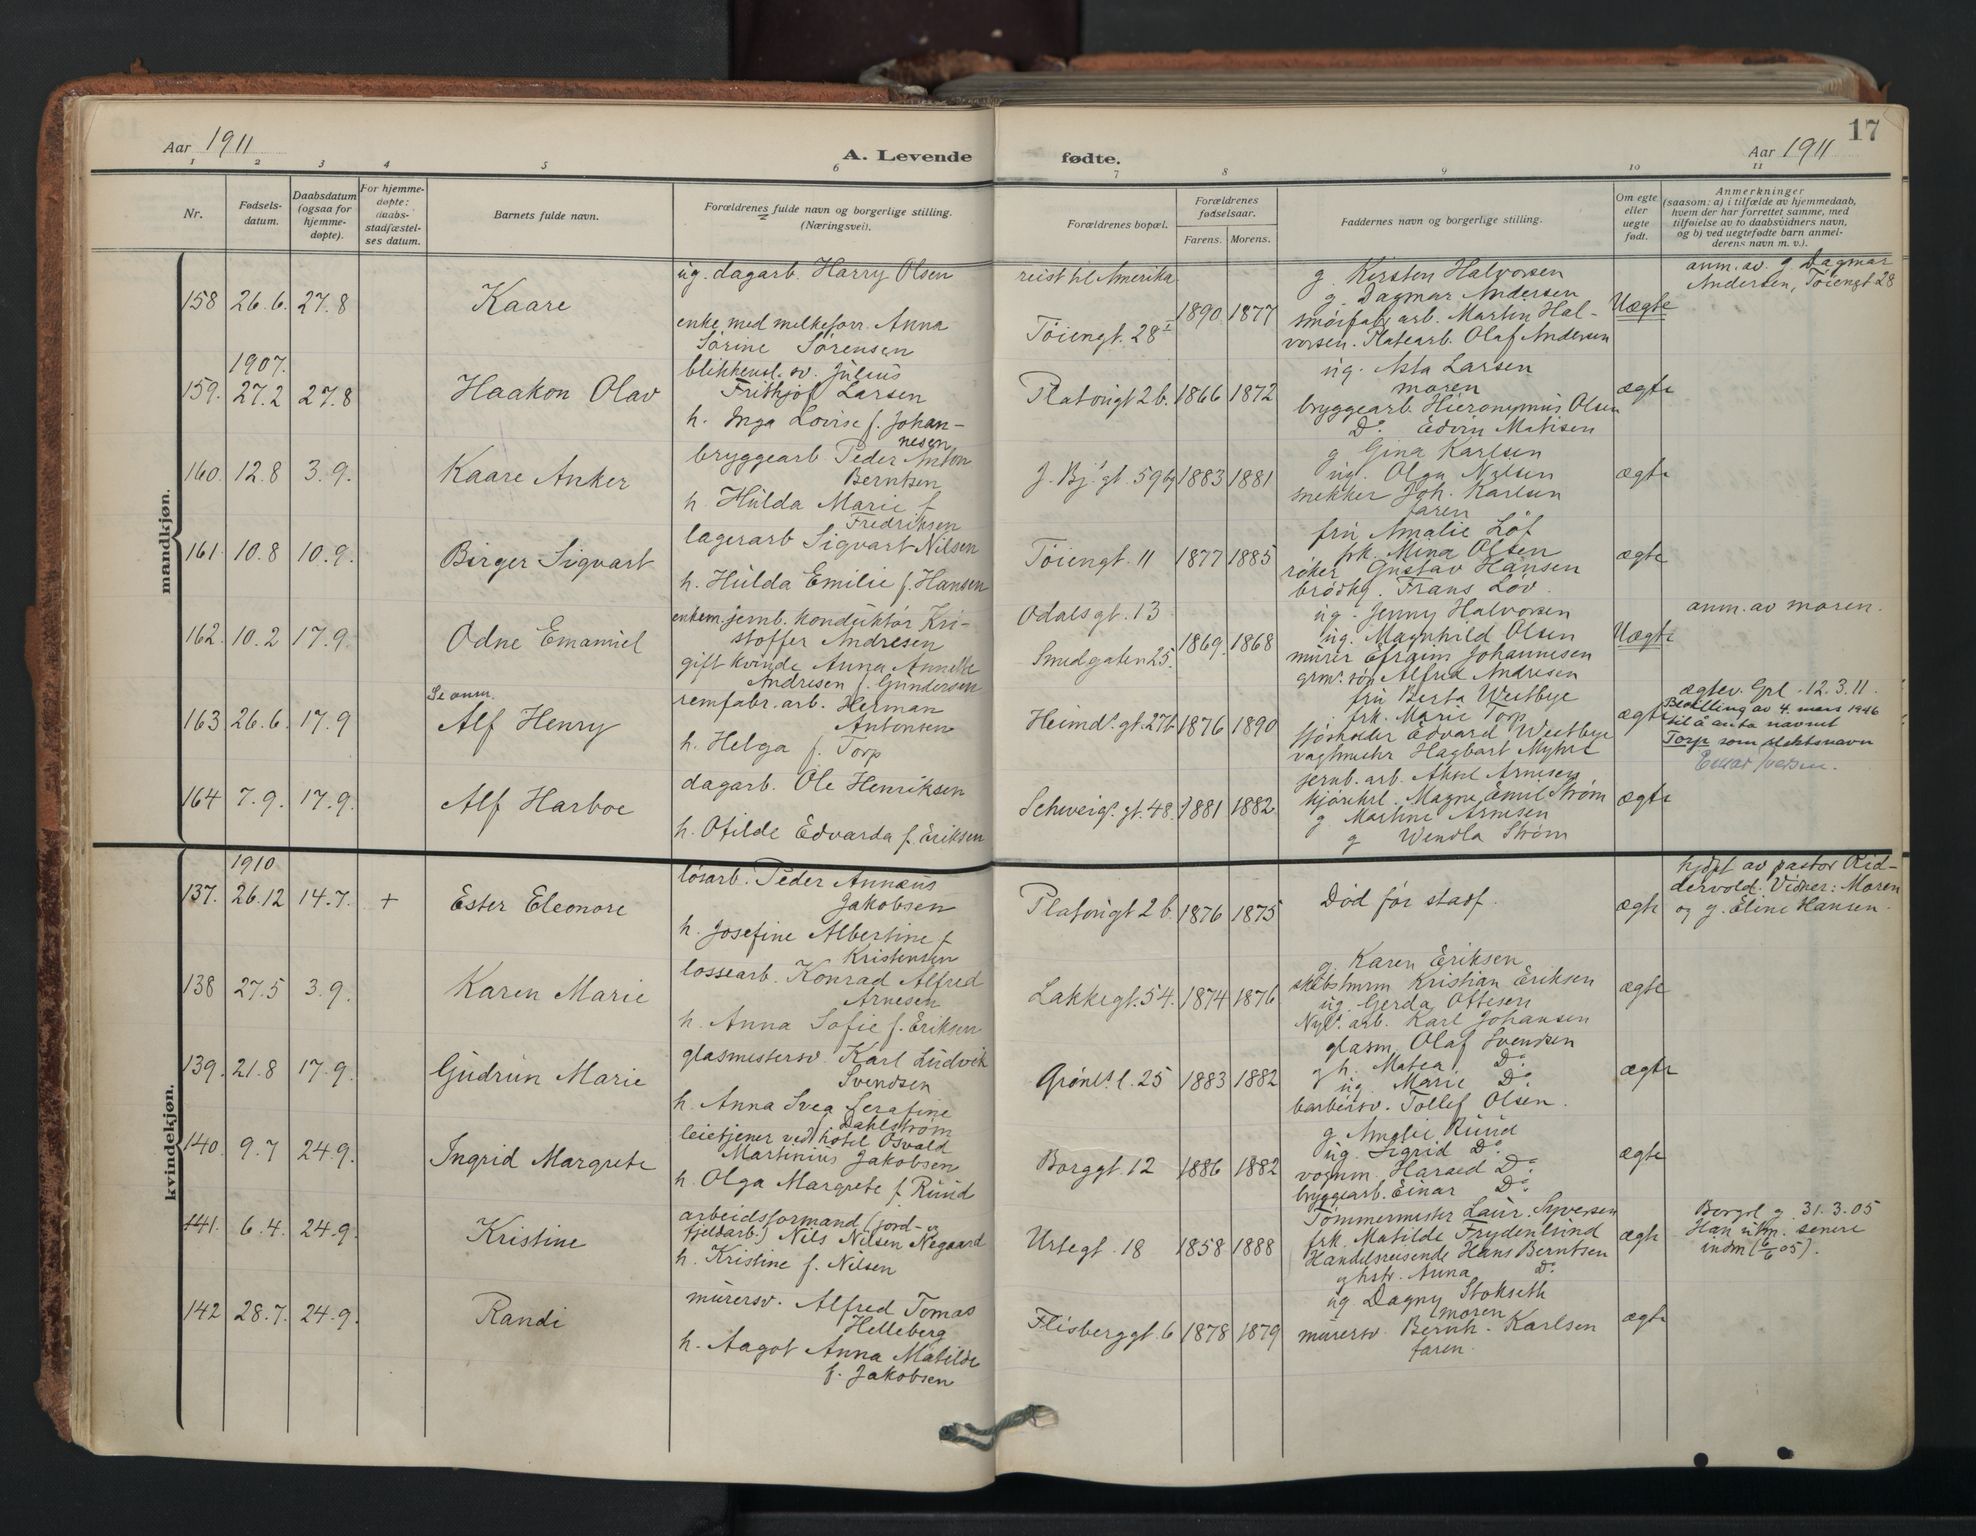 Aar 1911
A. Levende fødte.
Aar 1911
17
1 2 3 4 5 6 7 8 9 10 11
Nr.
Fødsels-
datum.
Daabsdatum
(ogsaa for
hjemme-
døpte).
For hjemme-
døpte:
daabs-
stadfæstel-
ses datum.
Barnets fulde navn.
Forældrenes fulde navn og borgerlige stilling.
(Næringsvei).
Forældrenes bopæl.
Forældrenes
fødselsaar.
Farens. Morens.
Faddernes navn og borgerlige stilling.
Om egte
eller
uegte
født.
Anmerkninger
(saasom: a) i tilfælde av hjemmedaab,
hvem der har forrettet samme, med
tilføielse av to daabsvidners navn,
og b) ved uegtefødte barn anmel-
derens navn m. v.).
mandkjøn.
158 26.6. 27.8
Kaare
ug. dagarb. Harry Olsen
enke med melkeforr. Anna
Sørine Sørensen
reist til Amerika
Tøiengt. 28 I
1890 1877
g. Kirsten Halvorsen
g. Dagmar Andersen
smørfabr arb. Martin Hal-
vorsen. Platearb. Olaf Andersen
Uægte
anm. av. g Dagmar
Andersen, Tøiengt 28
1907.
159. 27.2 27.8
Haakon Olav
blikkensl. sv. Julius
Frithjof Larsen
h. Inga Lovise f. Johan-
nesen
Platougt 2 b. 1866 1872
ug. Asta Larsen
moren
bryggearb. Hieronymus Olsen
Do. Edvin Matisen
ægte
160. 12.8 3.9.
Kaare Anker
bryggearb. Peder Anton
Berntsen
h. Hulda Marie f
Fredriksen
J. Bj. gt. 59 1883 1881
g Gina Karlsen
ug. Olga Nilsen
snekker Joh. Karlsen
faren
ægte
161. 10.8 10.9.
Birger Sigvart
lagerarb Sigvart Nilsen
h. Hulda Emilie f. Hansen
Tøiengt. 11 1877 1885
fru Amalie Löf
frk. Mina Olsen
røker Gustav Hansen
brødkj. Frans Löv.
ægte
162. 10.2 17.9.
Odne Emanuel
enkem. jernb. konduktør Kri-
stoffer Andresen
gift kvinde Anna Annette
Andresen f. Gundersen
Odalsgt. 13
Smedgaten 25.
1869. 1868
ug. Jenny Halvorsen
ug. Magnhild Olsen
murer Efraim Johannesen
Alfred Andresen
Uægte
anm. av moren.
163 26.6. 17.9
Se anm.
Alf Henry
remfabr. arb. Herman
Antonsen
h. Helga f. Torp
Heimds. gt. 27b 1876 1890
fru Berta Westbye
frk. Marie Torp
Edvard Westbye
Hagbart Myhre
ægte
ægtev. Grl. 12.3.11.
Bevilling av 4. mars 1946
til å anta navnet
Torp som slektsnavn
164 7.9. 17.9.
Alf Harboe
dagarb. Ole Henriksen
h. Otilde Edvarda f. Eriksen
Schweigs. gt. 48. 1881 1882
jernb. arb. Aksel Arnesen
kjørekrl. Magne Emil Strøm
g Martine Arnesen
g Wendla Strøm
ægte
kvindekjøn.
1910.
137. 26.12 14.7. +
Ester Eleonore
løsarb. Peder Annæus
Jakobsen
h. Josefine Albertine f
Kristensen
Platougt 2 b. 1876 1875
Død før stadf.
ægte
hjdpt av pastor Rid-
dervold. Vidner: Moren
og g. Eline Hansen.
138 27.5 3.9.
Karen Marie
lossearb. Konrad Alfred
Arnesen
h. Anna Sofie f. Eriksen
Lakkegt. 54. 1874 1876
g. Karen Eriksen
Kristian Eriksen
ug. Gerda Ottesen
Nyl. arb. Karl Johansen
ægte
139. 21.8 17.9.
Gudrun Marie
glasmestersv. Karl Ludvik
Svendsen
h. Anna Svea Serafine
f. Dahlstrøm
Grønl. l. 25 1883 1882
glasm. Olaf Svendsen
gh. Matea Do.
ug. Marie Do.
barbersv. Tollef Olsen.
ægte
140. 9.7 24.9.
Ingrid Margrete
leietjener ved hotel Osvald
Martinius Jakobsen
h. Olga Margrete f. Ruud
Borggt. 12 1886 1882
g Amalie Ruud
ug. Sigrid Do.
vognm. Harald Do.
bryggearb. Einar Do.
ægte
141. 6.4. 24.9.
Kristine
arbeidsformand (jord- og
fjeldarb.) Nils Nilsen Negaard
h. Kristine f. Nilsen
Urtegt. 18 1858 1888
Tømmermester Laur. Syversen
frk. Matilde Frydenlund
Handelsreisende Hans Berntsen
ghstr. Anna Do.
ægte
Borgrl g. 31.3.05
Han utm. senere
indm (6/6 05).
142 28.7. 24.9.
Randi
murersv. Alfred Tomas
Helleberg
h. Aagot Anna Matilde
f. Jakobsen
Flisberggt. 6 1878 1879
ug Dagny Stokseth
moren
murersv Bernh. Karlsen
faren.
ægte